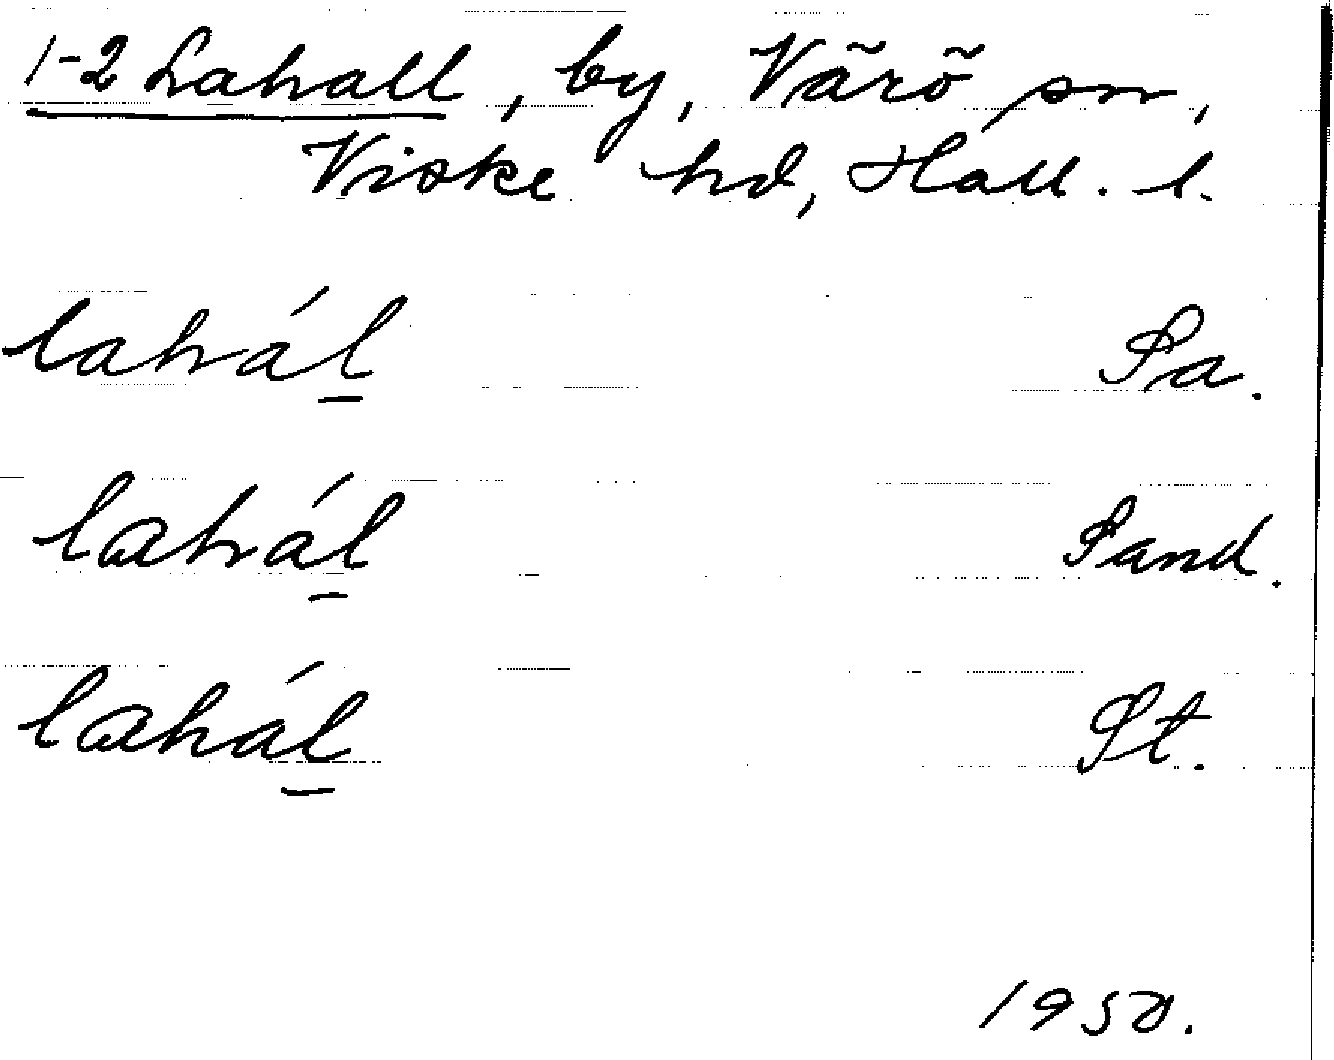 1-2 Lahall, by, Värö sn,
Viske hd, Hall. l.
lahál Sa.
lahál Sand.
lahál St.
1950.